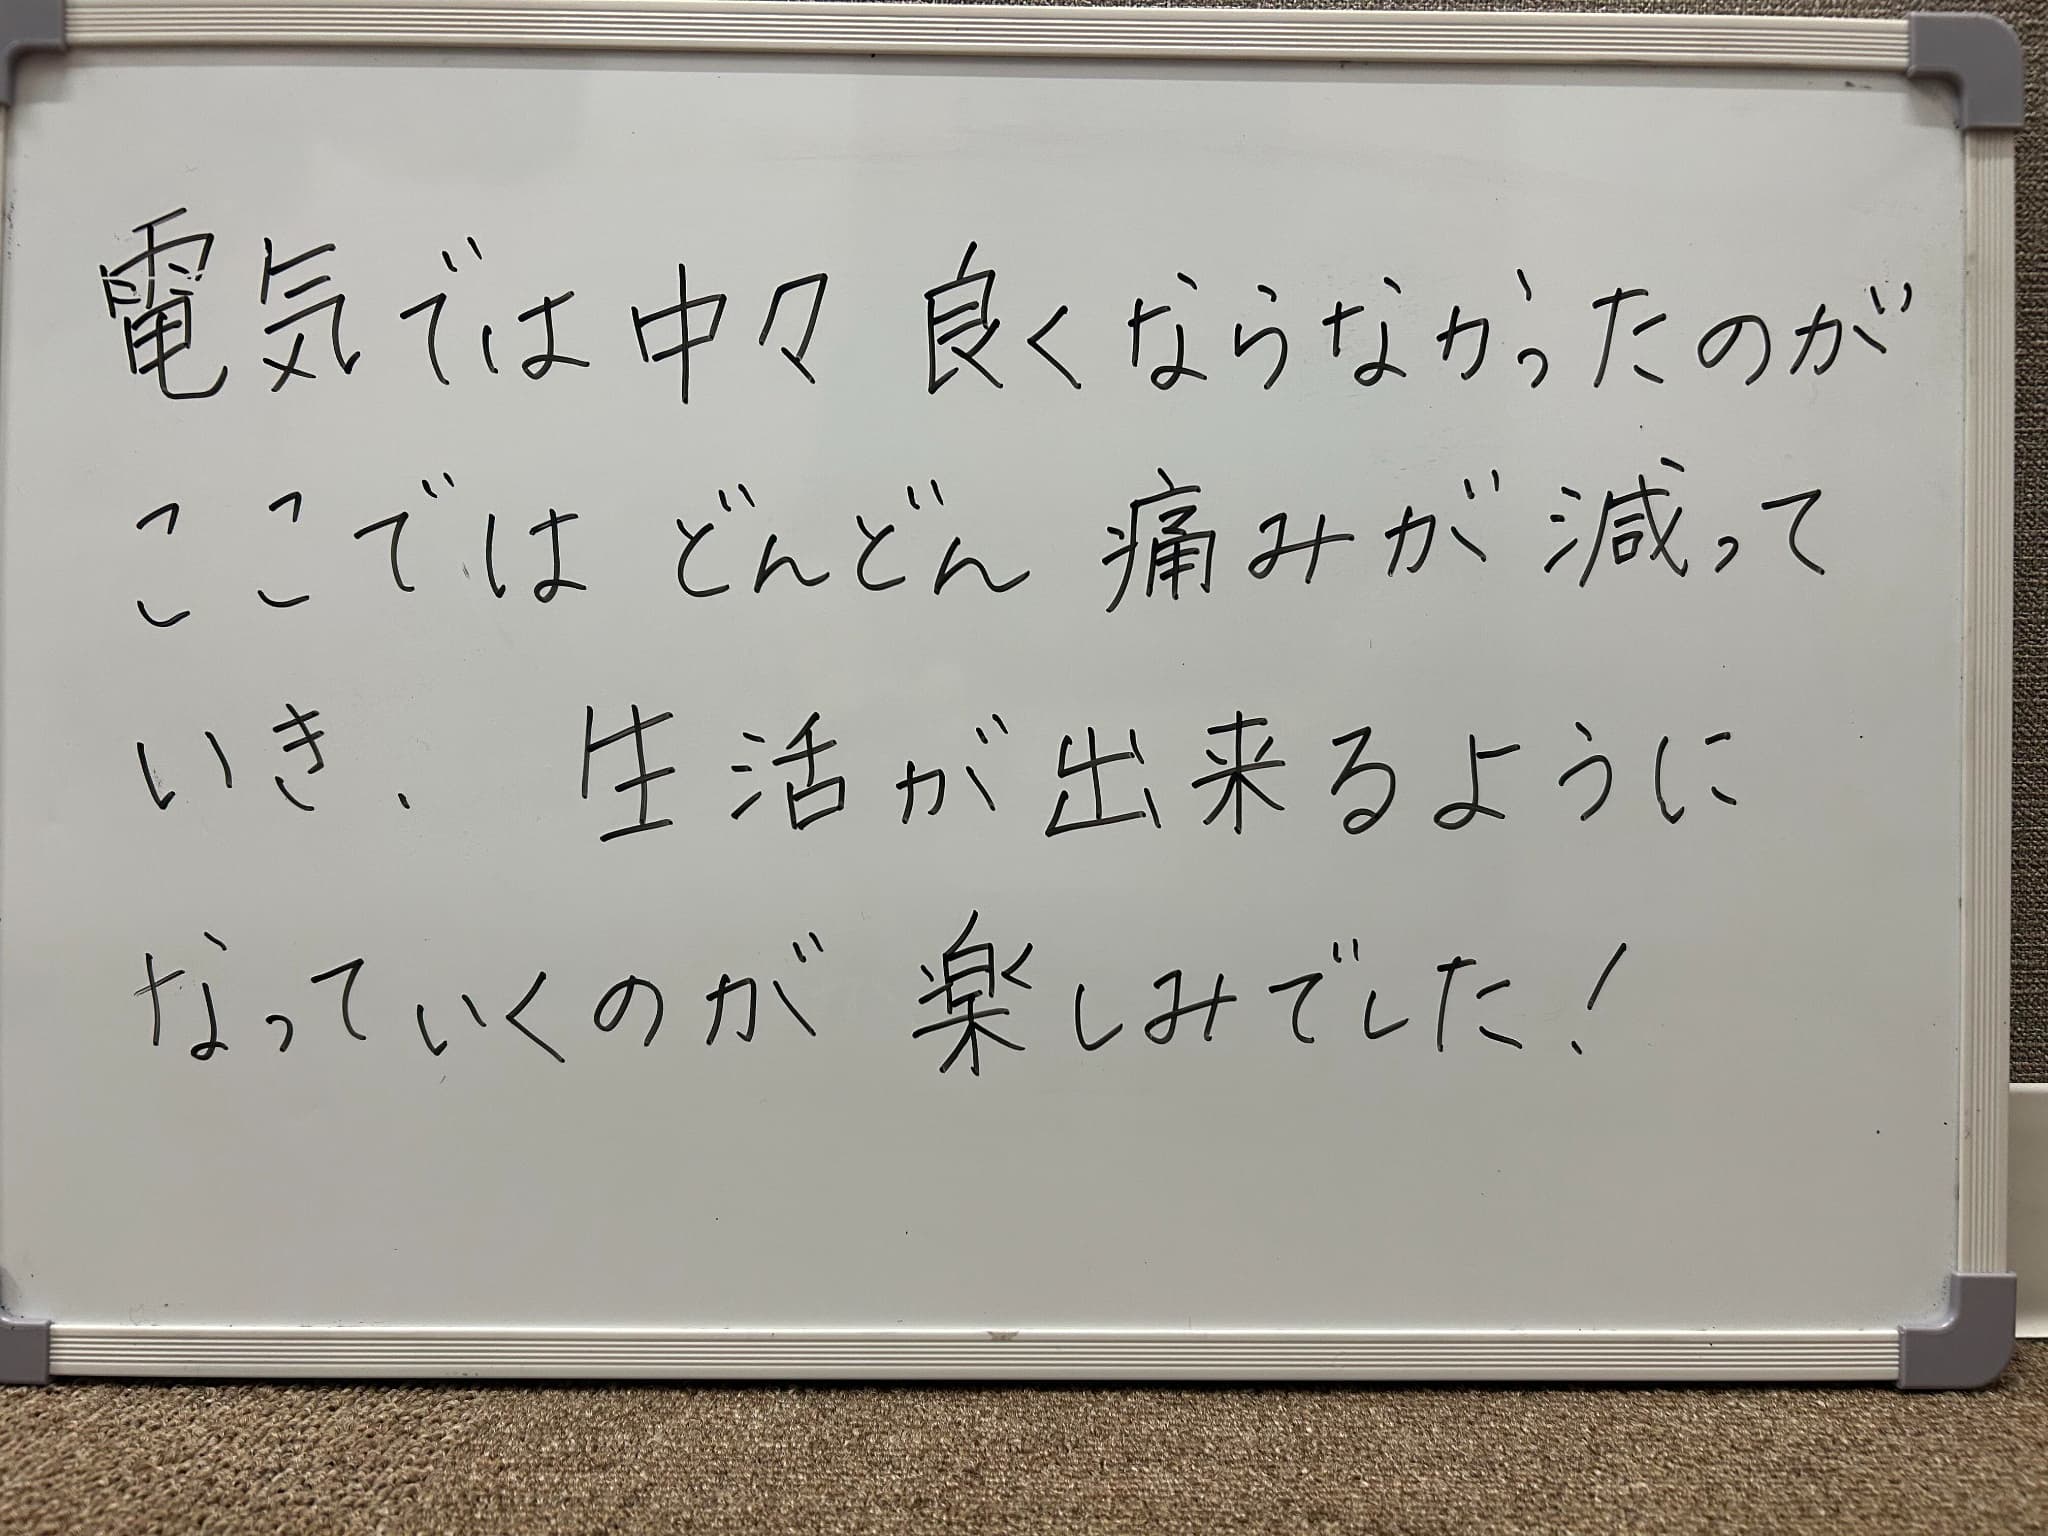 電気では中々 良くならなかったのが
ここでは どんどん 痛みが減って
いき、 生活が出来るように
なっていくのが 楽しみでした!